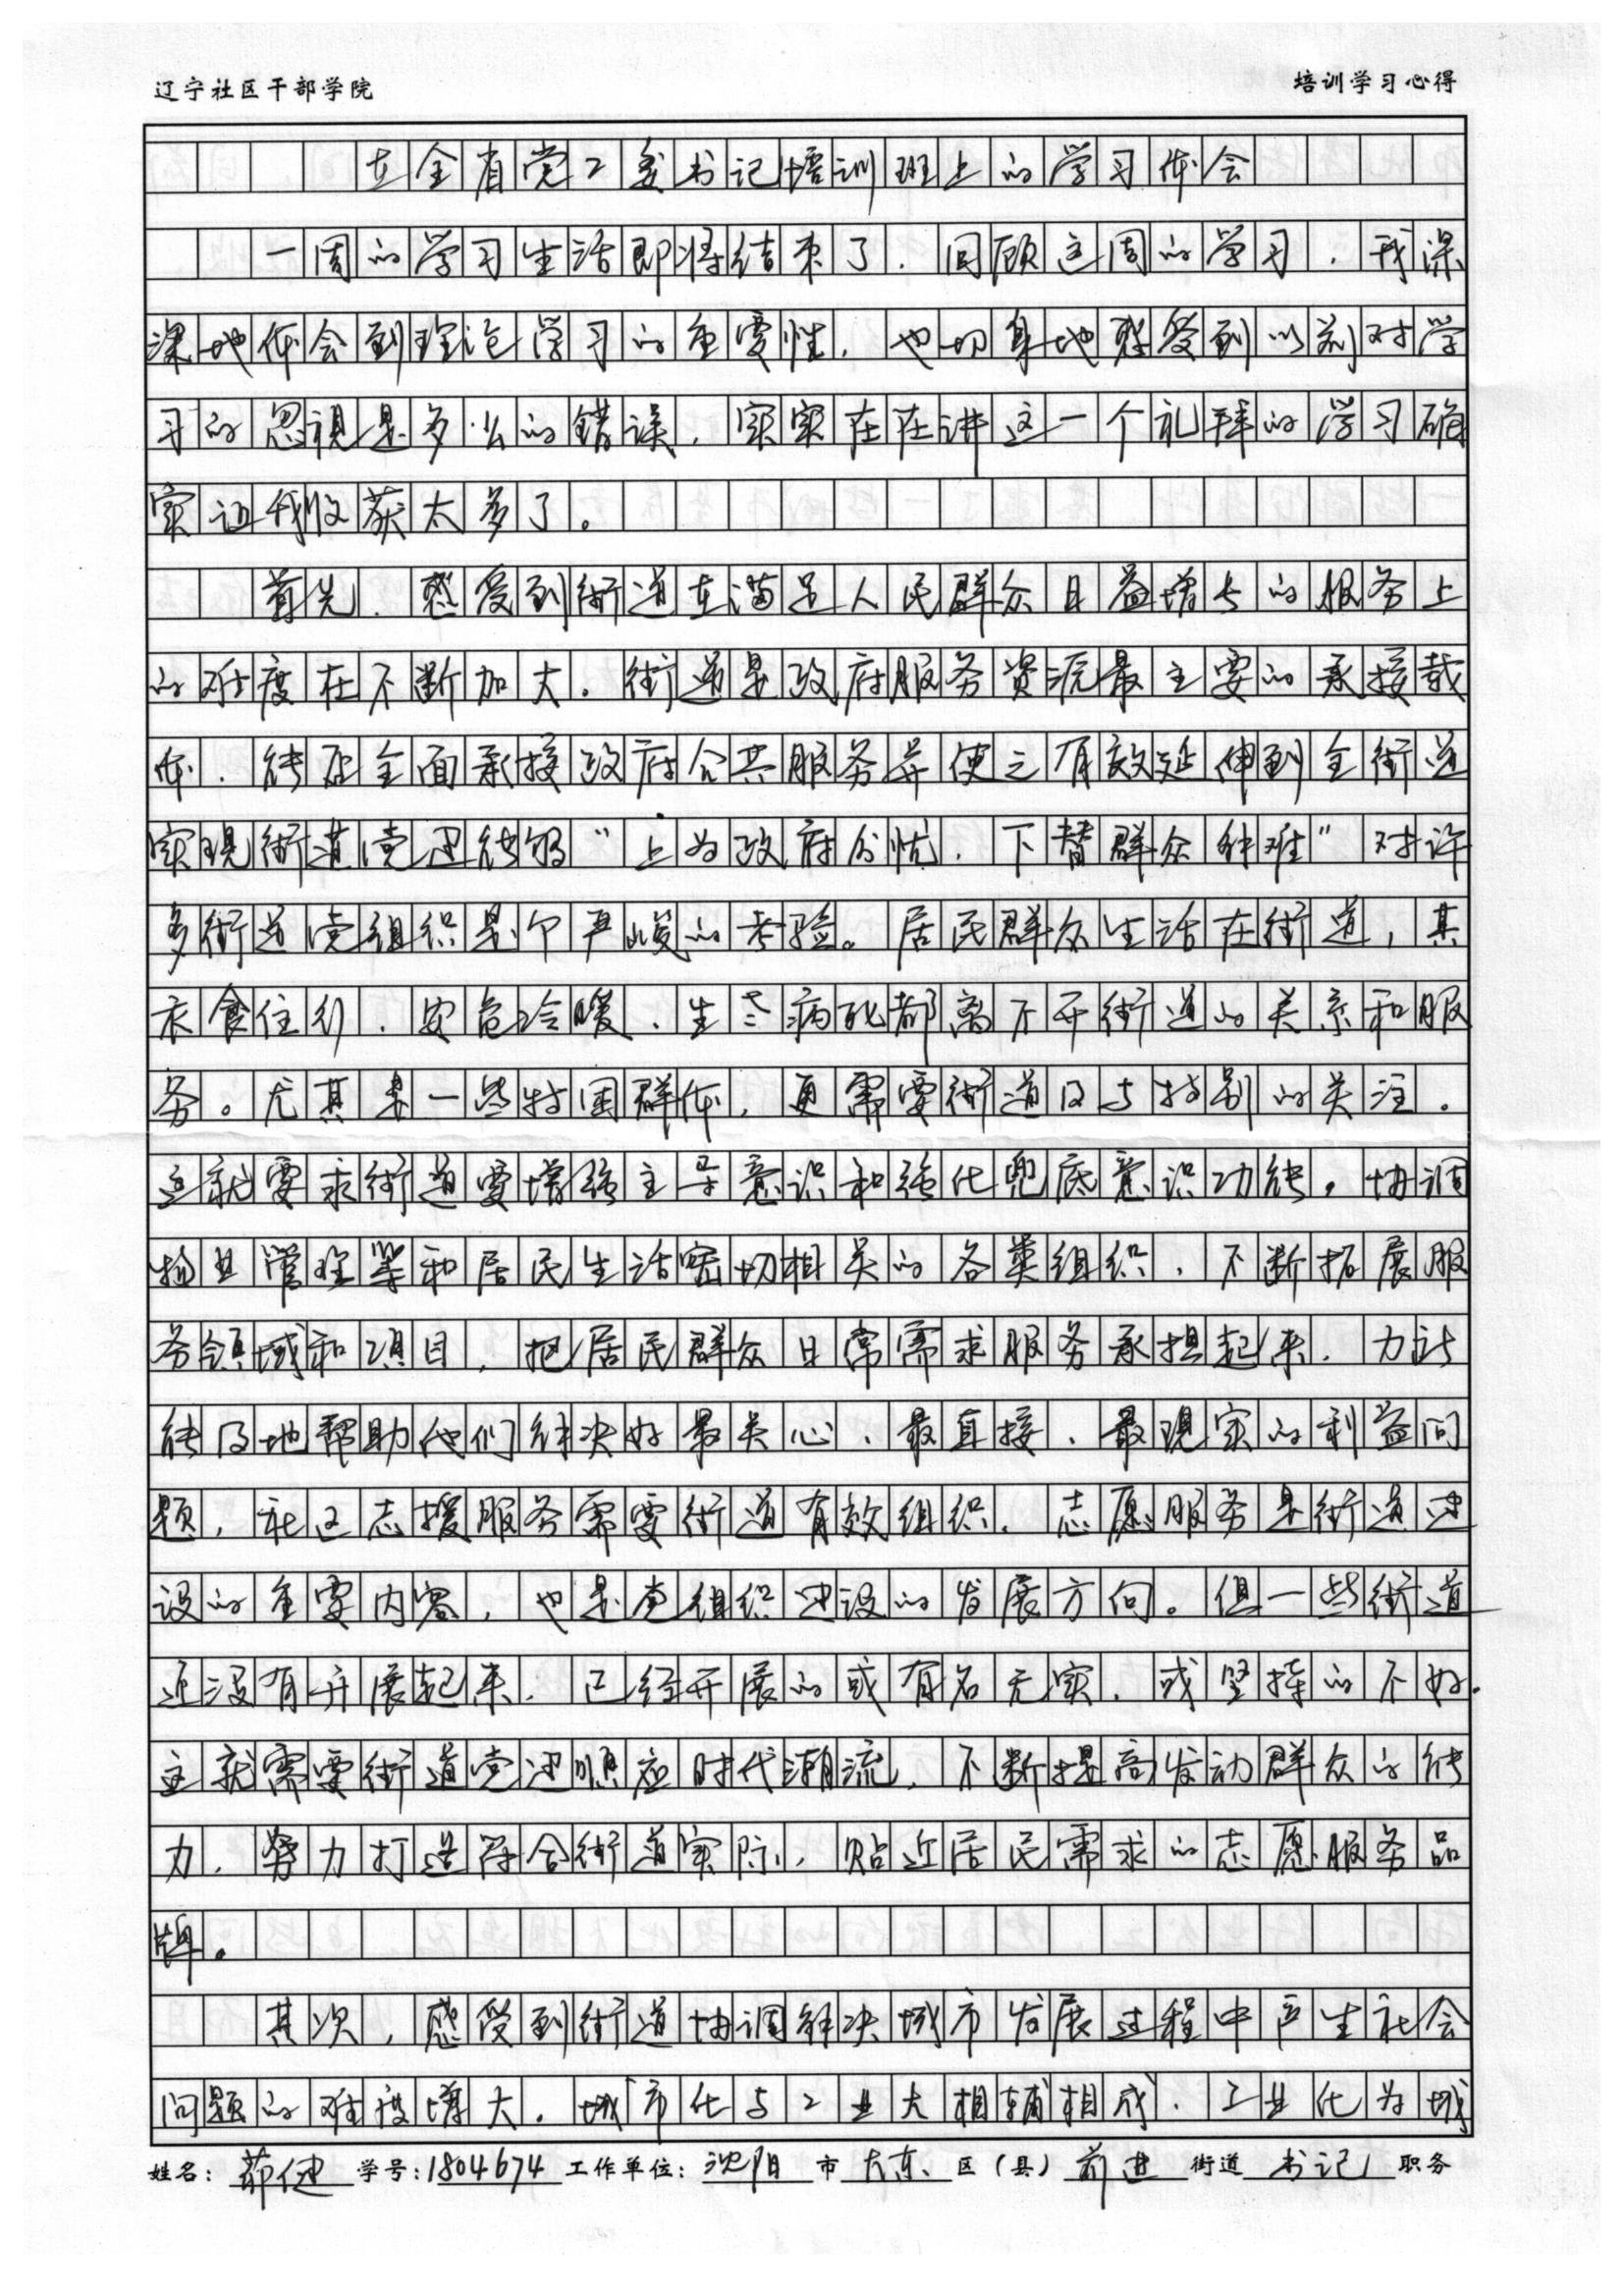 辽宁社区干部学院
培训学习心得
在全省党工委书记培训班上的学习体会
一周的学习生活即将结束了，回顾这周的学习，我深
深地体会到理论学习的重要性，也切身地感受到以前对学
习的忽视是多么的错误，实实在在讲这一个礼拜的学习确
实让我收获太多了。
首先，感受到街道在满足人民群众日益增长的服务上
的难度在不断加大。街道是政府服务资源最主要的承接载
体，能否全面承接政府公共服务并使之有效延伸到全街道
实现街道党建能够“上为政府分忧，下替群众解难”对许
多街道党组织是个严峻的考验。居民群众生活在街道，其
衣食住行、安危冷暖、生老病死都离不开街道的关系和服
务。尤其是一些特困群体，更需要街道及与特别的关注。
这就要求街道要增强主导意识和强化兜底意识功能。协调
物业管理等和居民生活密切相关的各类组织，不断拓展服
务领域和项目，把居民群众日常需求服务承担起来，力所
能及地帮助他们解决好最关心、最直接、最现实的利益问
题，社区志援服务需要街道有效组织。志愿服务是街道建
设的重要内容，也是党组织建设的发展方向。但一些街道
还没有开展起来，已经开展的或有名无实，或坚持的不好。
这就需要街道党建顺应时代潮流，不断提高发动群众的能
力，努力打造符合街道实际，贴近居民需求的志愿服务品
牌。
其次，感受到街道协调解决城市发展过程中产生社会
问题的难度增大。城市化与工业大相辅相成，工业化为城
姓名：茆健 学号：1804674 工作单位：沈阳 市 大东 区（县） 前进 街道 书记 职务